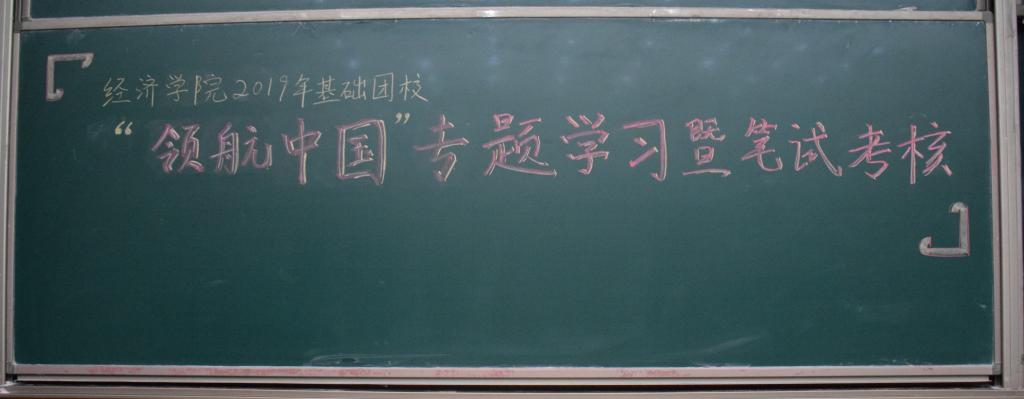 经济学院2019年基础团校
“领航中国”专题学习暨笔试考核